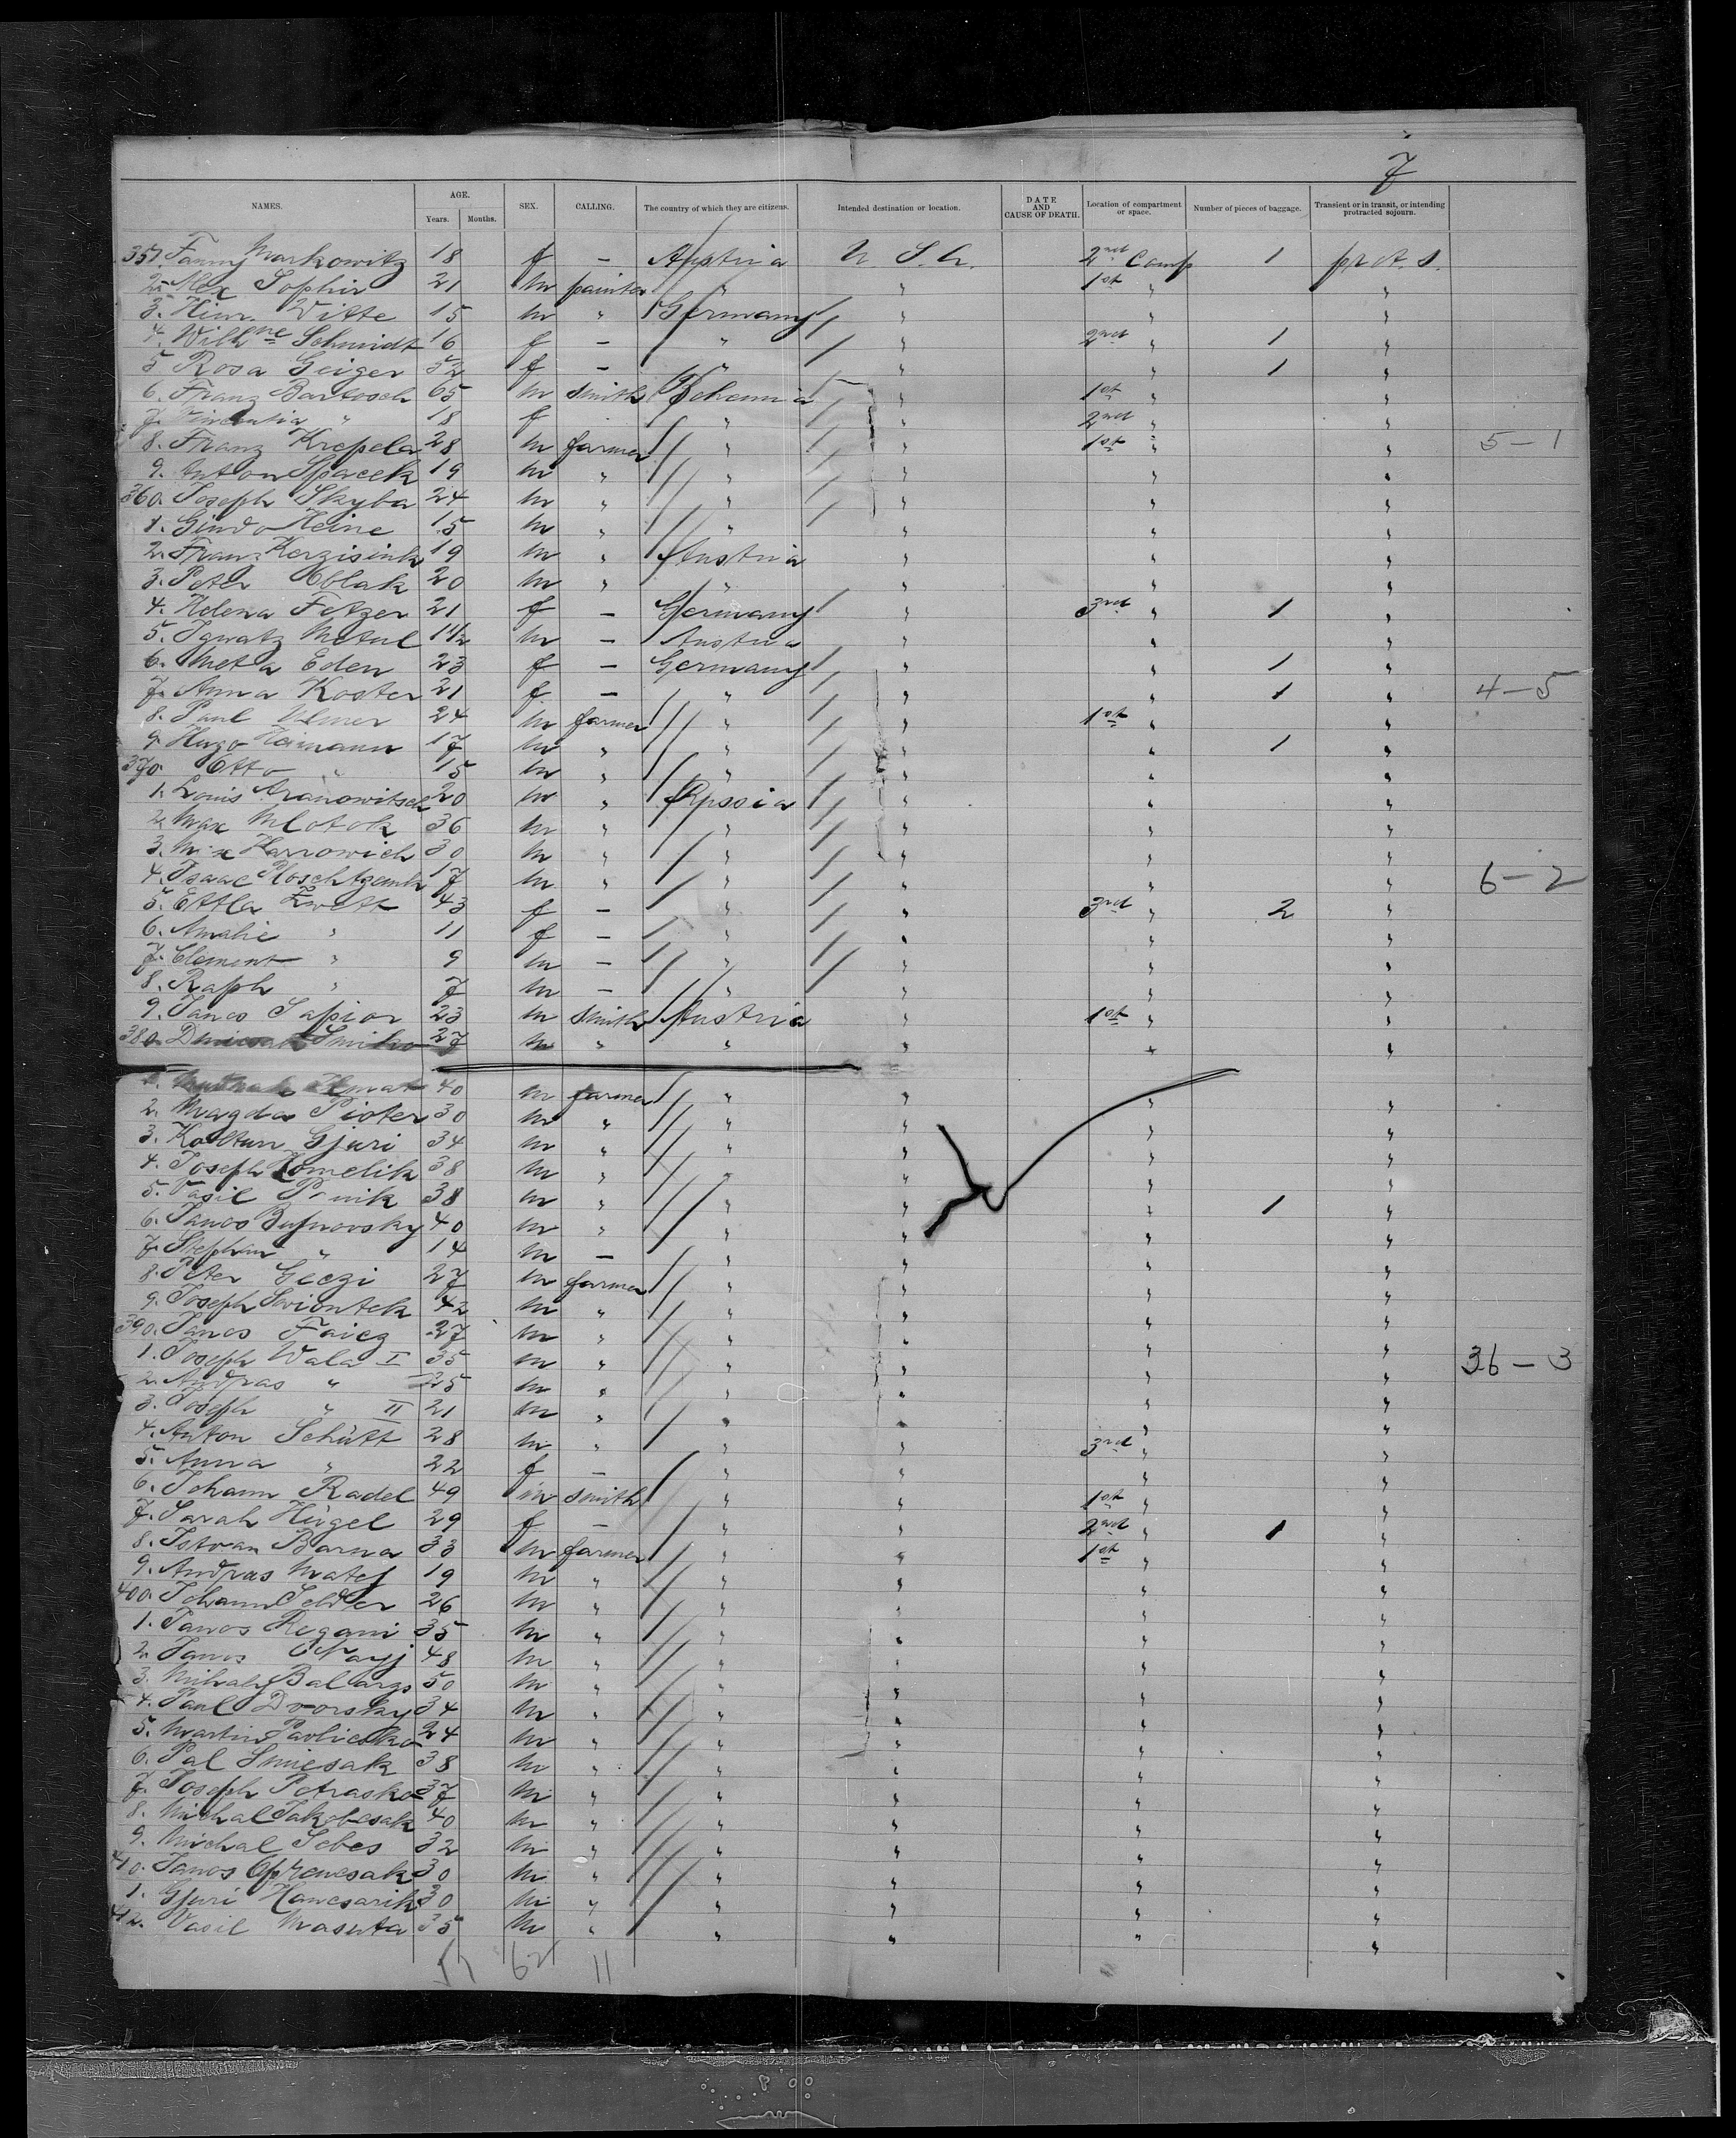 7
NAMES. AGE. Years. Months. SEX. CALLING. The country of which they are citizens. Intended destination or location. DATE AND CAUSE OF DEATH. Location of compartment or space. Number of pieces of baggage. Transient or in transit, or intending protracted sojourn.
351. Fanny Markowitz 18 f — Austria U.S.A. 2nd Comp 1 prot. s.
2. Alex Sophir 21 m painter " " 1st " "
3. Hinr. Witte 15 m " Germany " " "
4. Wilhne Schmidt 16 f — " " 2nd " 1 "
5 Rosa Geiger 52 f — " " " 1 "
6. Franz Bartosch 65 m smith Bohemia " 1st " "
7. Vincentia " 18 f " " 2nd " "
8. Franz Krepela 28 m farmer " " 1st " " 5-1
9. Anton Spacek 19 m " " " " "
360. Joseph Skyba 24 m " " " " "
1. Heine 15 m " " " " "
2. Franz 19 m " Austria " " "
3. Peter Oblak 20 m " " " " "
4. Helena Fetzer 21 f — Germany " 3rd " 1 "
5. Ignatz Metul 1 1/2 m — Austria " " "
6. Meta Eden 23 f — Germany " " 1 "
7. Anna Koster 21 f — " " " 1 " 4-5
8. Paul Ulmer 24 m farmer " " 1st " "
9. Hugo Heimann 17 m " " " " 1 "
370. Otto " 15 m " " " " "
1. Louis Aranowitsch 20 m " Russia " " "
2. Max Mlotok 36 m " " " " "
3. Max Harrowich 30 m " " " " "
4. Isaac 17 m " " " " " 6-2
5. Ettla 43 f — " " 3rd " 2 "
6. Amalie " 11 f — " " " "
7. Clement " 9 m — " " " "
8. Raph " 7 m — " " " "
9. Janos Sapior 23 m smith Austria " 1st " "
380. 27 m " " " " "
1. 40 m farmer " " " "
2. Magda Pioter 30 m " " " " "
3. Koltun Gjuri 34 m " " " " "
4. Joseph Homelik 38 m " " " " "
5. Vasil 38 m " " " " 1 "
6. Janos 40 m " " " " "
7. Stephan " 14 m — " " " "
8. Peter Geczi 27 m farmer " " " "
9. Joseph Swiontek 42 m " " " " "
390. Janos Faicz 27 m " " " " "
1. Joseph Wala I 35 m " " " " " 36-3
2. Andras " 25 m " " " " "
3. Joseph " II 21 m " " " " "
4. Anton Schütt 28 m " " " 3rd " "
5. Anna " 22 f — " " " "
6. Johann Radel 49 m smith " " 1st " "
7. Sarah Hügel 29 f — " " 2nd " 1 "
8. Istvan Barna 33 m farmer " " 1st " "
9. Andras Matej 19 m " " " " "
400. Johann 26 m " " " " "
1. Janos Regani 35 m " " " " "
2. Janos 48 m " " " " "
3. Mihaly 50 m " " " " "
4. Paul Dvorsky 34 m " " " " "
5. Martin 24 m " " " " "
6. Pal Smicsak 38 m " " " " "
7. Joseph Petrasko 37 m " " " " "
8. Michal Jakobcsak 40 m " " " " "
9. Michal Sebes 32 m " " " " "
410. Janos 30 m " " " " "
1. Gjuri Hancsarik 30 m " " " " "
412. Vasil Masuta 35 m " " " " "
62 11